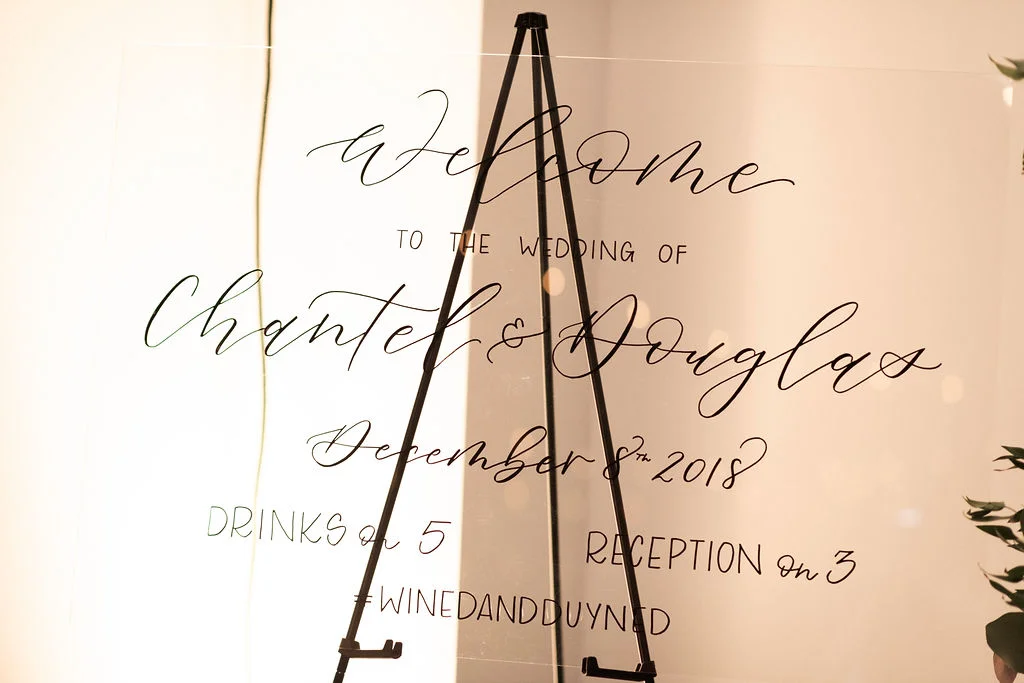 Welcome
TO THE WEDDING OF
Chantel & Douglas
December 8th 2018
DRINKS on 5 RECEPTION on 3
#WINEDANDDUYNED